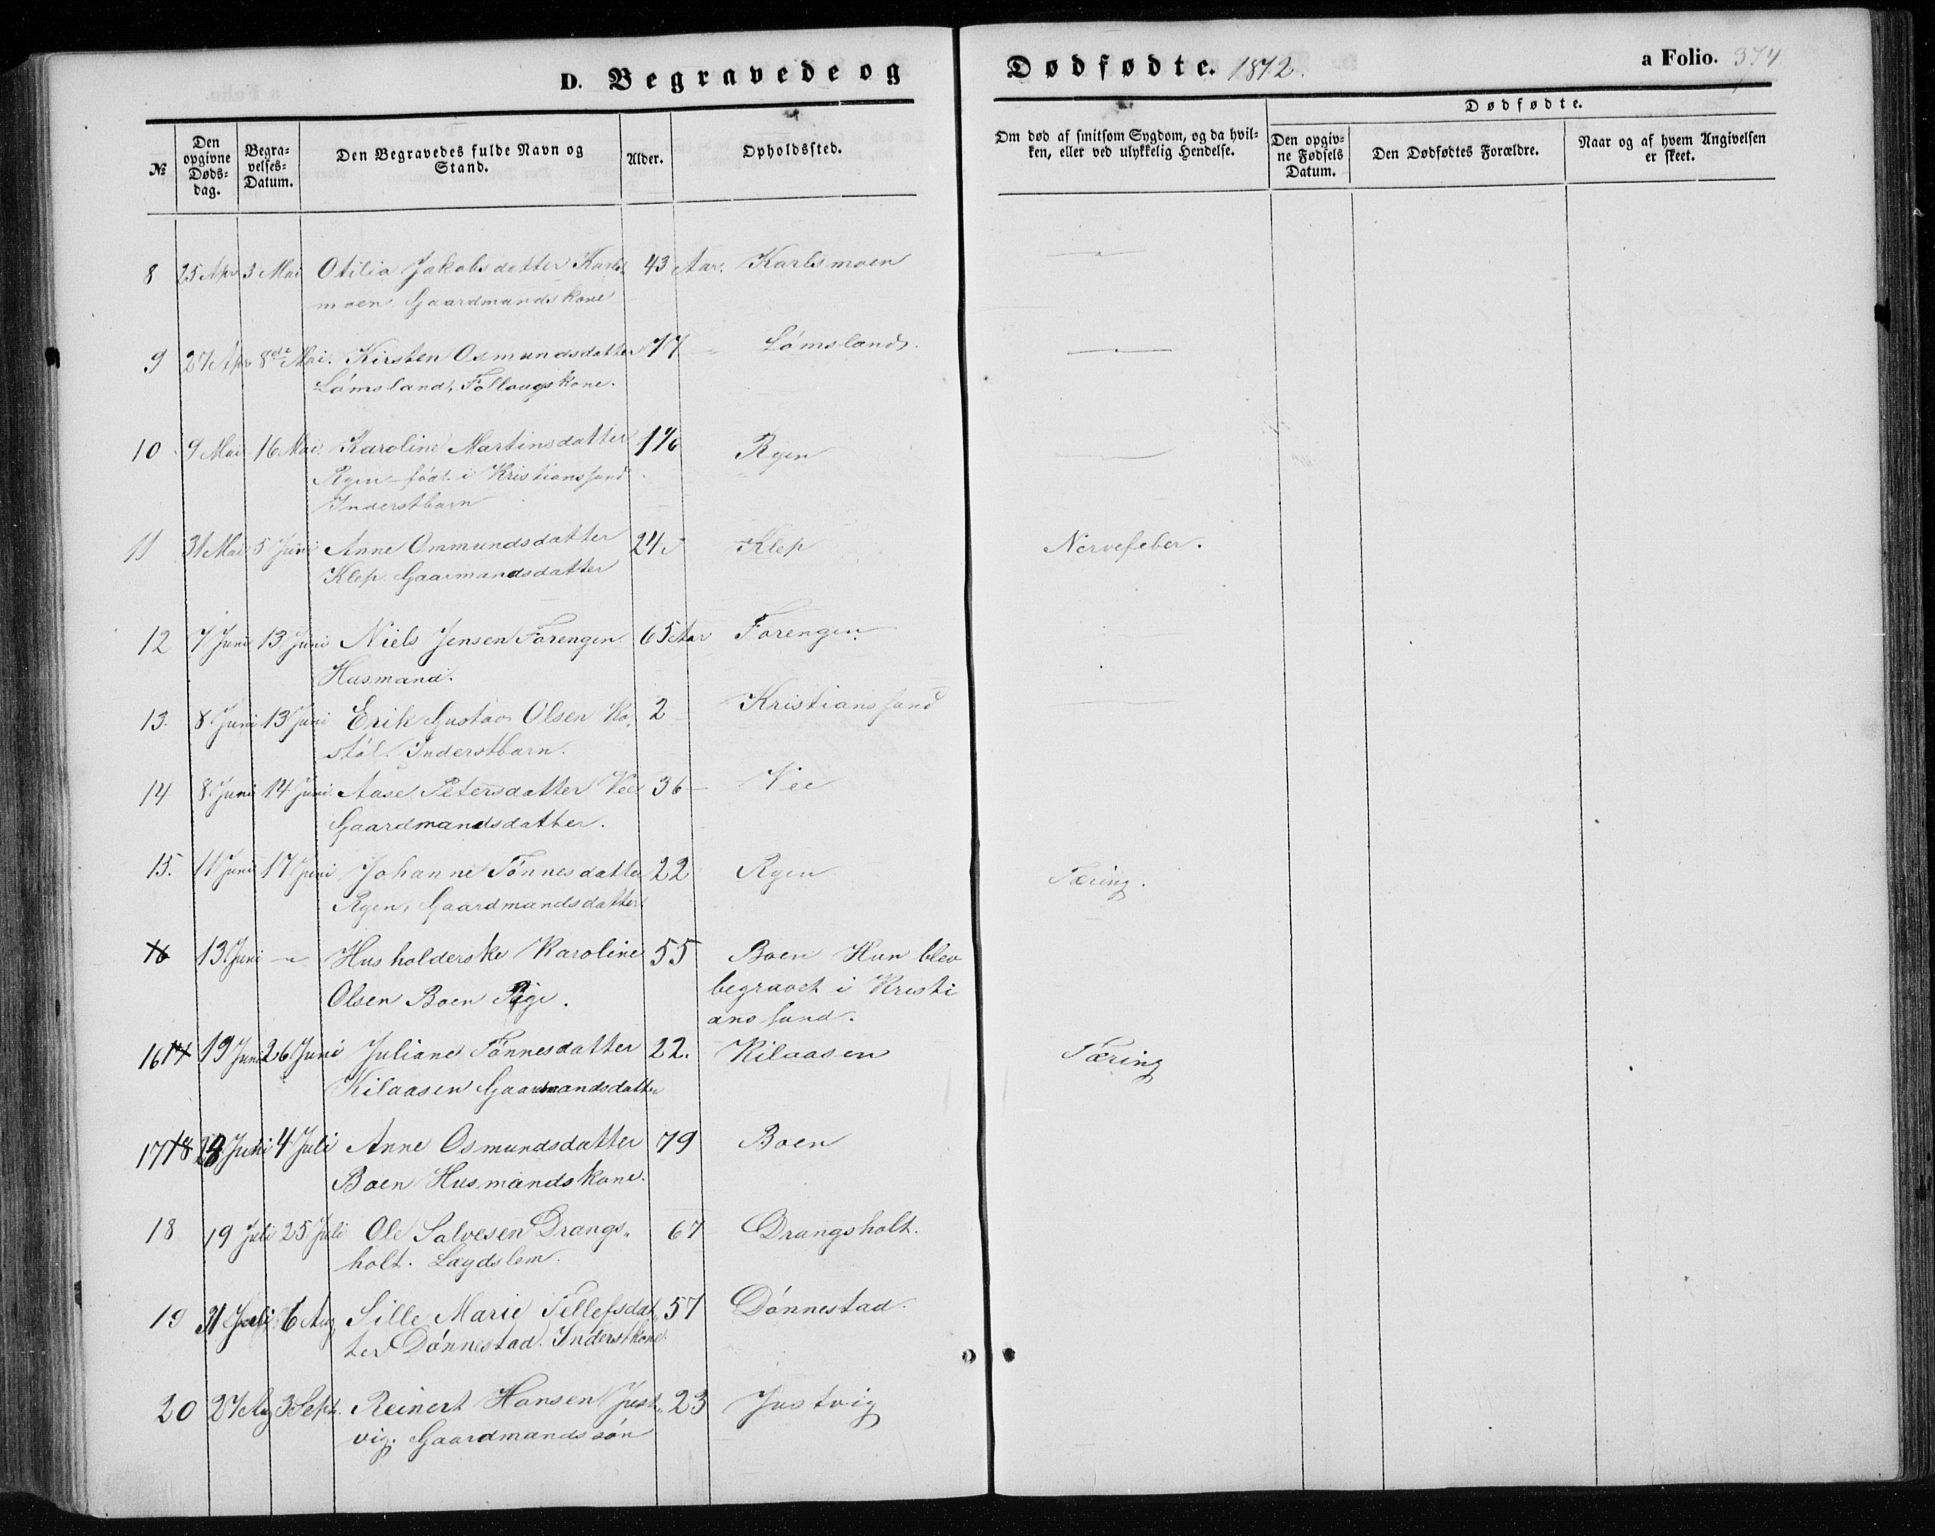 D. Begravede og Dødfødte. 1872. a Folio. 374
Dødfødte.
№
Den opgivne Døds-dag.
Begra-velses-Datum.
Den Begravedes fulde Navn og Stand.
Alder.
Opholdssted.
Om død af smitsom Sygdom, og da hvil-ken, eller ved ulykkelig Hendelse.
Den opgiv-ne Fødsels Datum.
Den Dødfødtes Forældre.
Naar og af hvem Angivelsen er skeet.
8 25 Apr 3 Mai Otilia Jakobsdatter Karls 43 Aar. Karlsmoen
moen. Gaardmandskone
9 27 Apr 8de Mai. Kirsten Osmundsdatter 77 Lømsland.
Lømsland, Follougskone.
10 9 Mai 16 Mai. Karoline Martinsdatter Ryen
Ryen født i Kristianssand
Inderstbarn
11 31 Mai 5 Juni Anne Ommundsdatter 24 Klep Nervefeber.
Klep. Gaarmandsdatter
12 7 Juni 13 Juni Niels Jensen Forengen 65 Aar Forengen
Husmand.
13. 8 Juni 13 Juni Erik Gustav Olsen Ro 2 Kristianssand
støl. Inderstbarn.
14 8 Juni 14 Juni. Aase Petersdatter Vee 36 Vee
Gaardmandsdatter.
15. 11 Juni 17 Juni Johanne Tønnesdatter 22 Ryen Tæring.
Ryen, Gaardmandsdatter
16 13 Juni Husholderske Karoline 55 Boen Hun blev
Olsen Boen Pige. begravet i Kristi
anssand.
16 17 19 Juni 26 Juni Juliane Tønnesdatter 22. Kilaasen Tæring
Kilaasen Gaarmandsdatter
17 18 28 Juni 4 Juli Anne Osmundsdatter 79 Boen
Boen Husmandskone.
18 19 Juli 25 Juli Ole Salvesen Drangs 67 Drangsholt.
holt. Lægdslem.
19 31 Juli 6 Aug Sille Marie Tellefsdat 57 Dønnestad.
ter Dønnestad. Inderstkone
20 27 Aug 3 Sept. Reinert Hansen Just 23 Justvig
vig. Gaardmandssøn